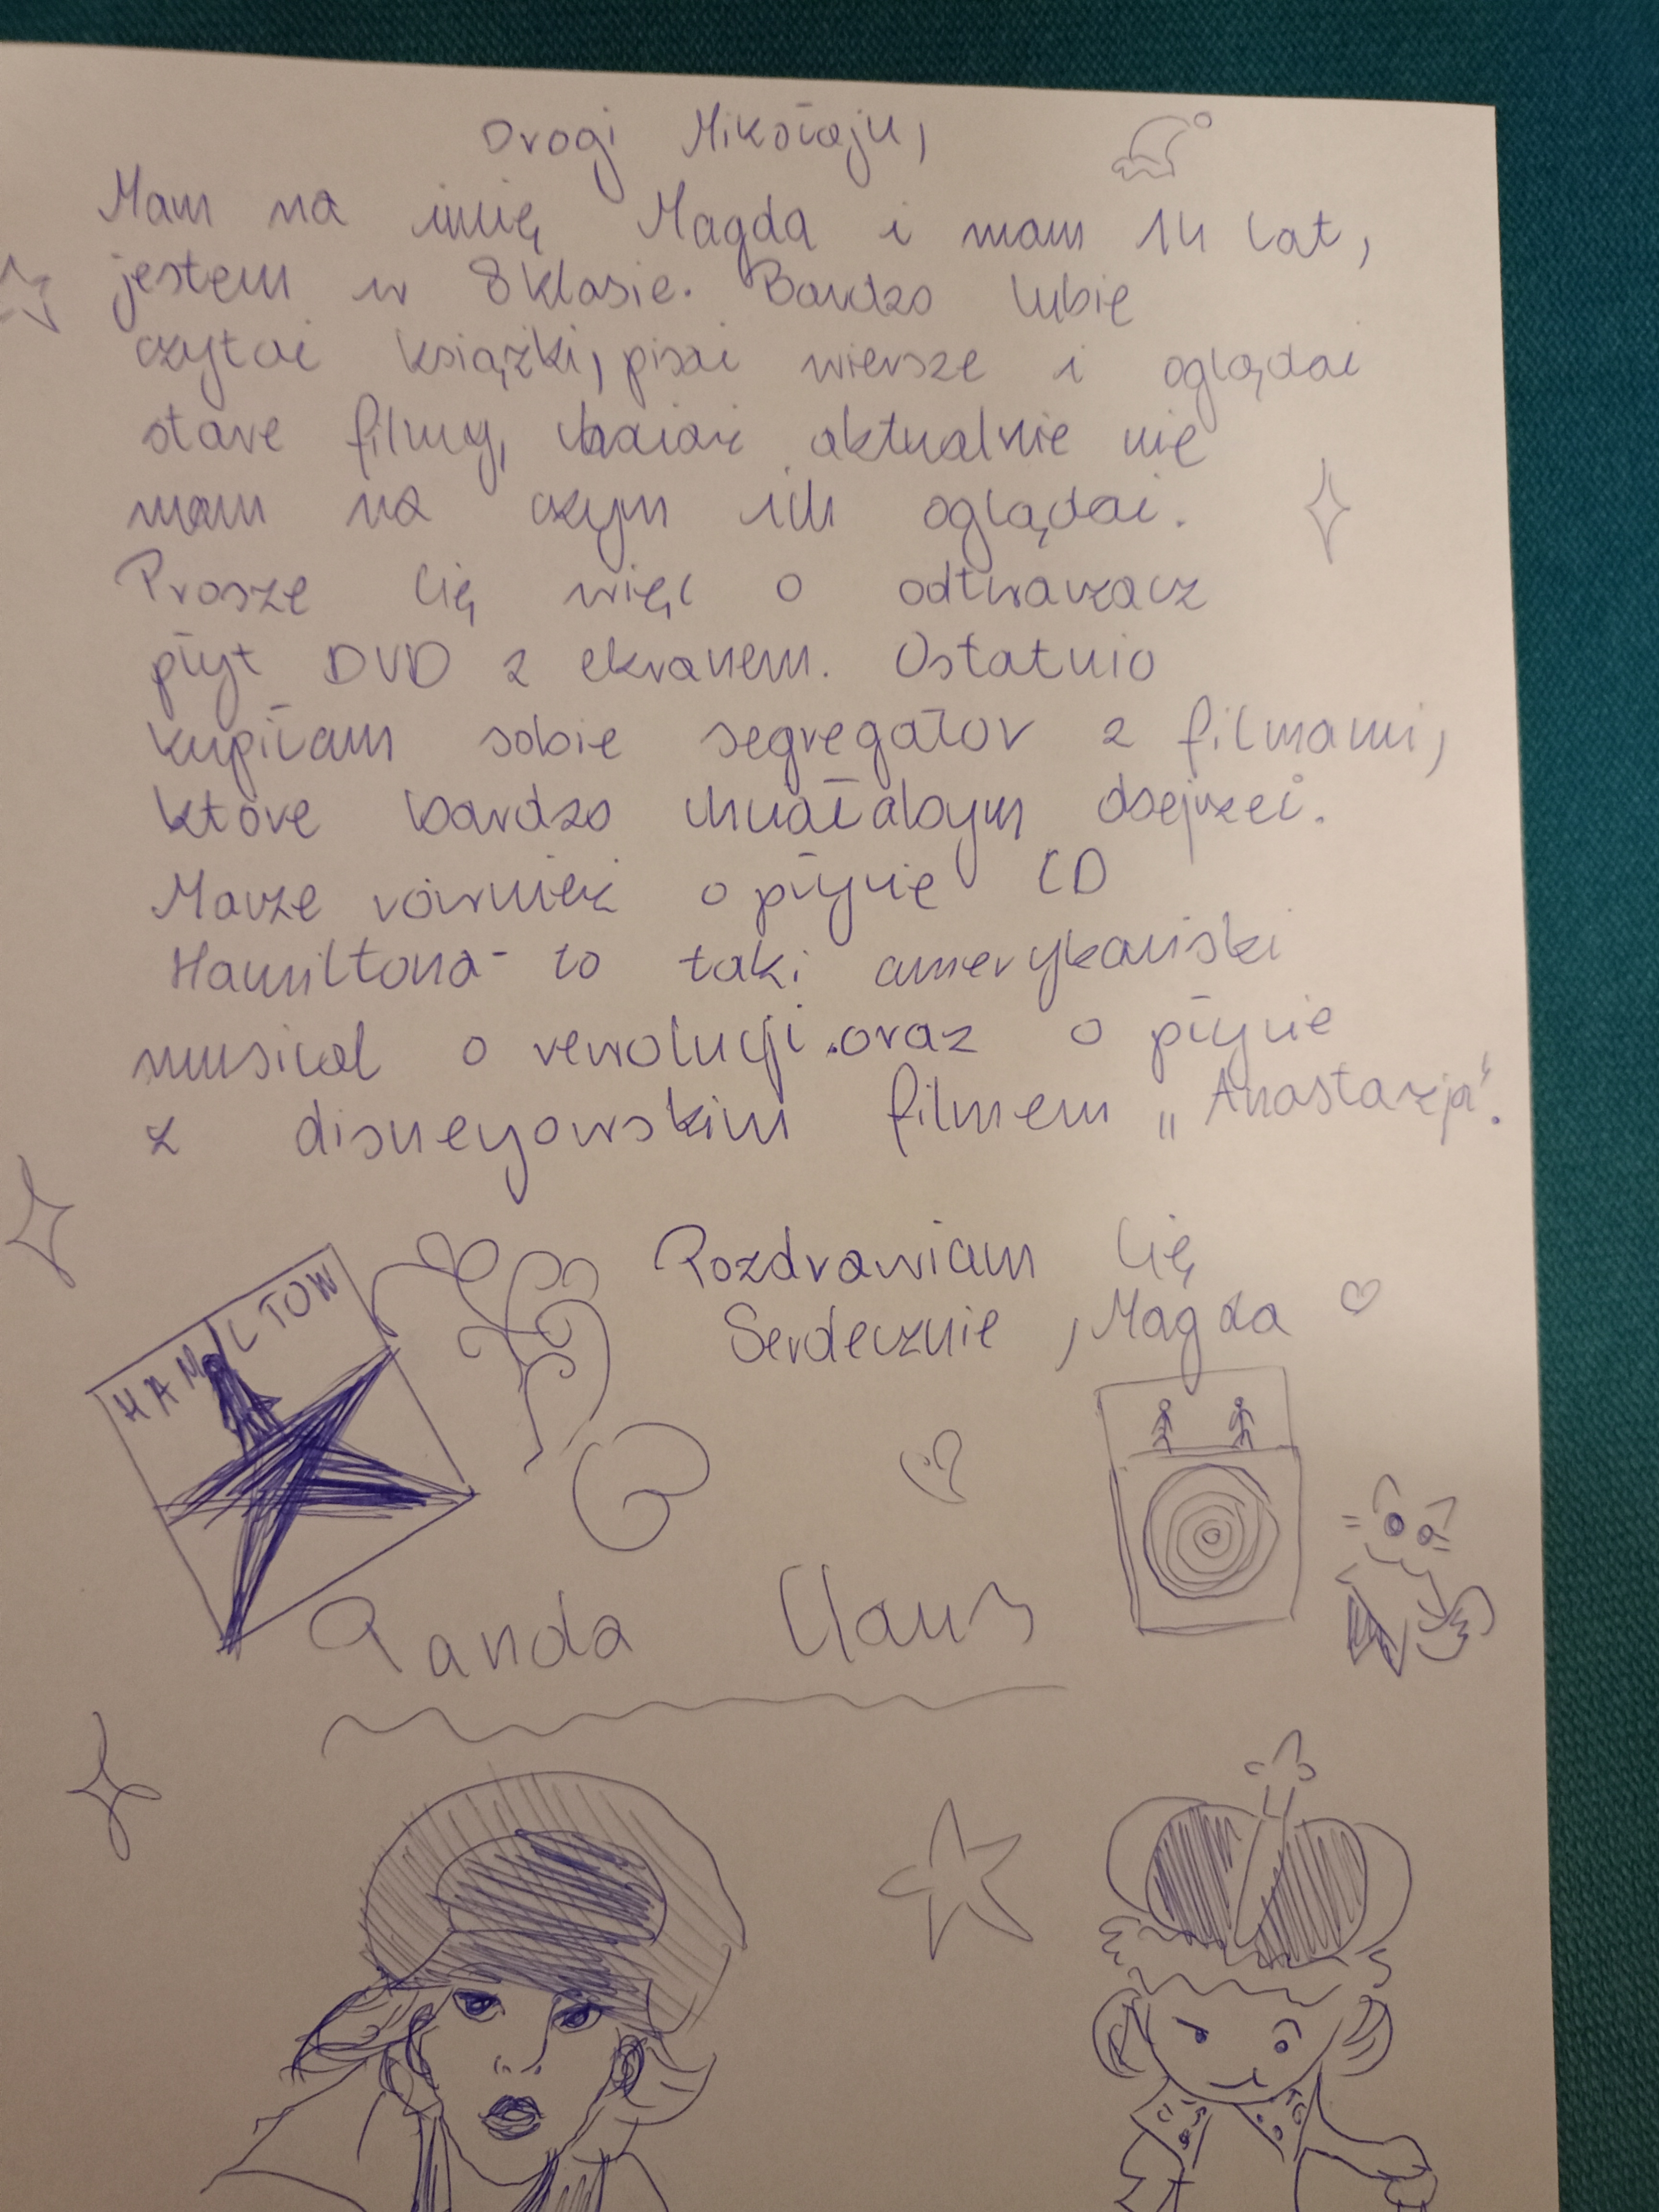 Drogi Mikołaju,
Mam na imię Magda i mam 14 lat,
jestem w 8 klasie. Bardzo lubię
czytać książki, pisać wiersze i oglądać
stare filmy, chociaż aktualnie nie
mam na czym ich oglądać.
Proszę Cię więc o odtwarzacz
płyt DVD z ekranem. Ostatnio
kupiłam sobie segregator z filmami,
które bardzo chciałabym obejrzeć.
Marzę również o płycie CD
Hamiltona - to taki amerykański
musical o rewolucji. oraz o płycie
z disneyowskim filmem „Anastazja".
Pozdrawiam Cię
Serdecznie, Magda
HAMILTON
Panda Claus